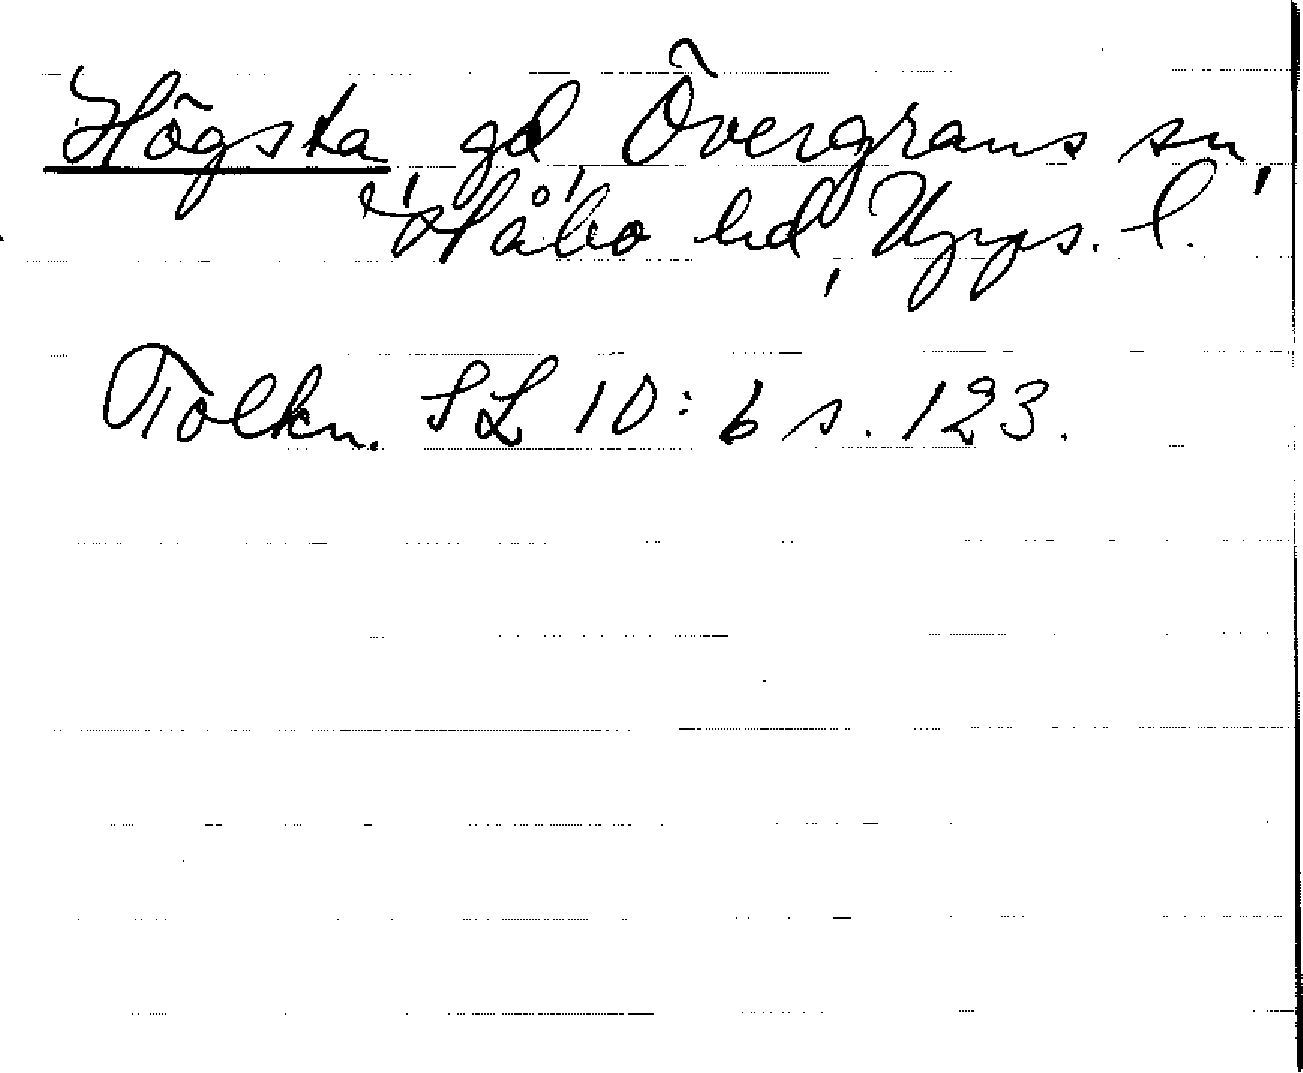 Högsta, gd, Övergrans sn,
Håbo hd, Upps. l.
Tolkn. SL 10:6 s. 123.